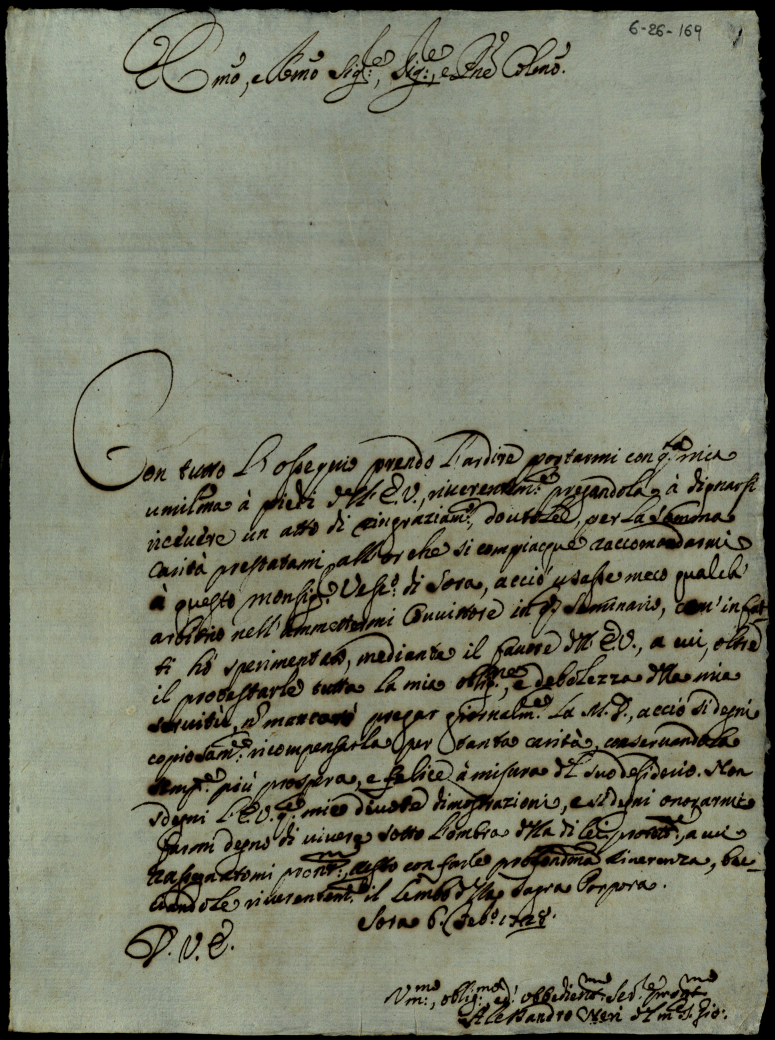 6-26-169
Em͂o, e Rm͂o Sig:re, Sig:re, e Pn͂e Colm͂o.
Con tutto l'ossequio prendo l'ardire portarmi con q:ta mia
umilm͂a à piedi dell'E.V., riverentem:e pregandola à dignarsi
ricevere un atto di ringraziam:, dovutole, per la somma
carità prestatami all'or che si compiacque raccomandarmi
à questo Monsig: Vesc:o di Sora, acciò usasse meco qualch'
arbitrio nell'ammettermi Convittore in q:o Seminario, com' in fat-
ti hò sperimentato, mediante il favore dell'E.V., a cui, oltre
il protestarle tutta la mia oblig:ne, e debolezza della mia
servitù, nõ mancarò pregar giornalm:e la M.D., acciò si degni
copiosam:e ricompensarla per tanta carità, conservandola
semp:e più prospera, e felice à misura del suo desiderio. Non
sdegni l'E.V. q:e mie divote dimostrazioni, e si degni onorarmi
farmi degno di vivere sotto l'ombra della di lei, a cui
rassegnatomi resto con farle profondm͂a riverenza, bac-
ciandole riverentem:e il lembo della Sagra Porpora.
Sora 6. Feb:o 1728.
D. V. E.
V:mo, oblig:mo, ed obbedient:mo Ser:re
Alessandro Neri